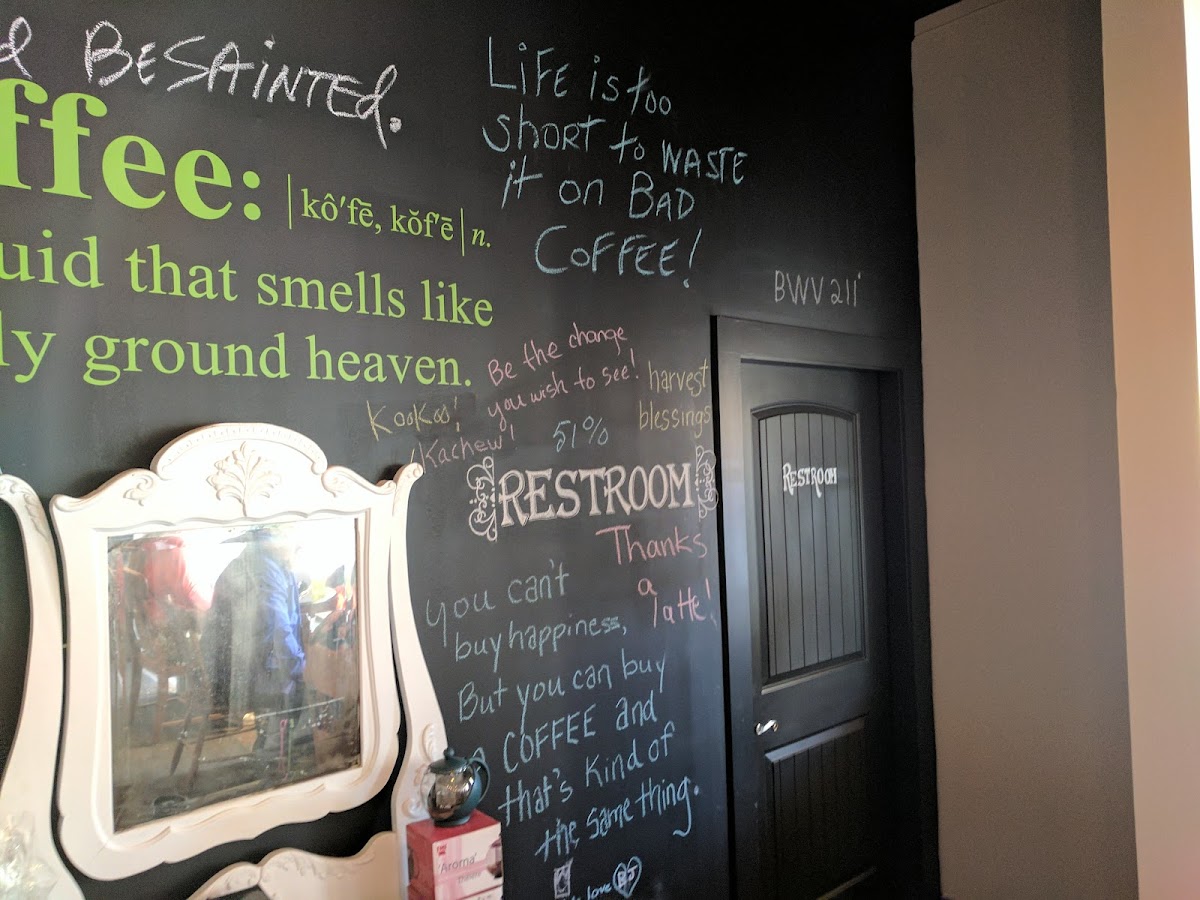 BESAINTEd.
ffee: |kô′fē, kŏf′ē| n.
uid that smells like
ly ground heaven.
LiFE is too
short to WASTE
it on BAD
COFFEE!
BWV 211
Be the change
you wish to see!
harvest
blessings
KooKoo!
Kachew!
51%
RESTROOM
RESTROOM
Thanks
a
latte!
you can't
buy happiness,
But you can buy
COFFEE and
that's kind of
the same thing.
love BJ
'Aroma'